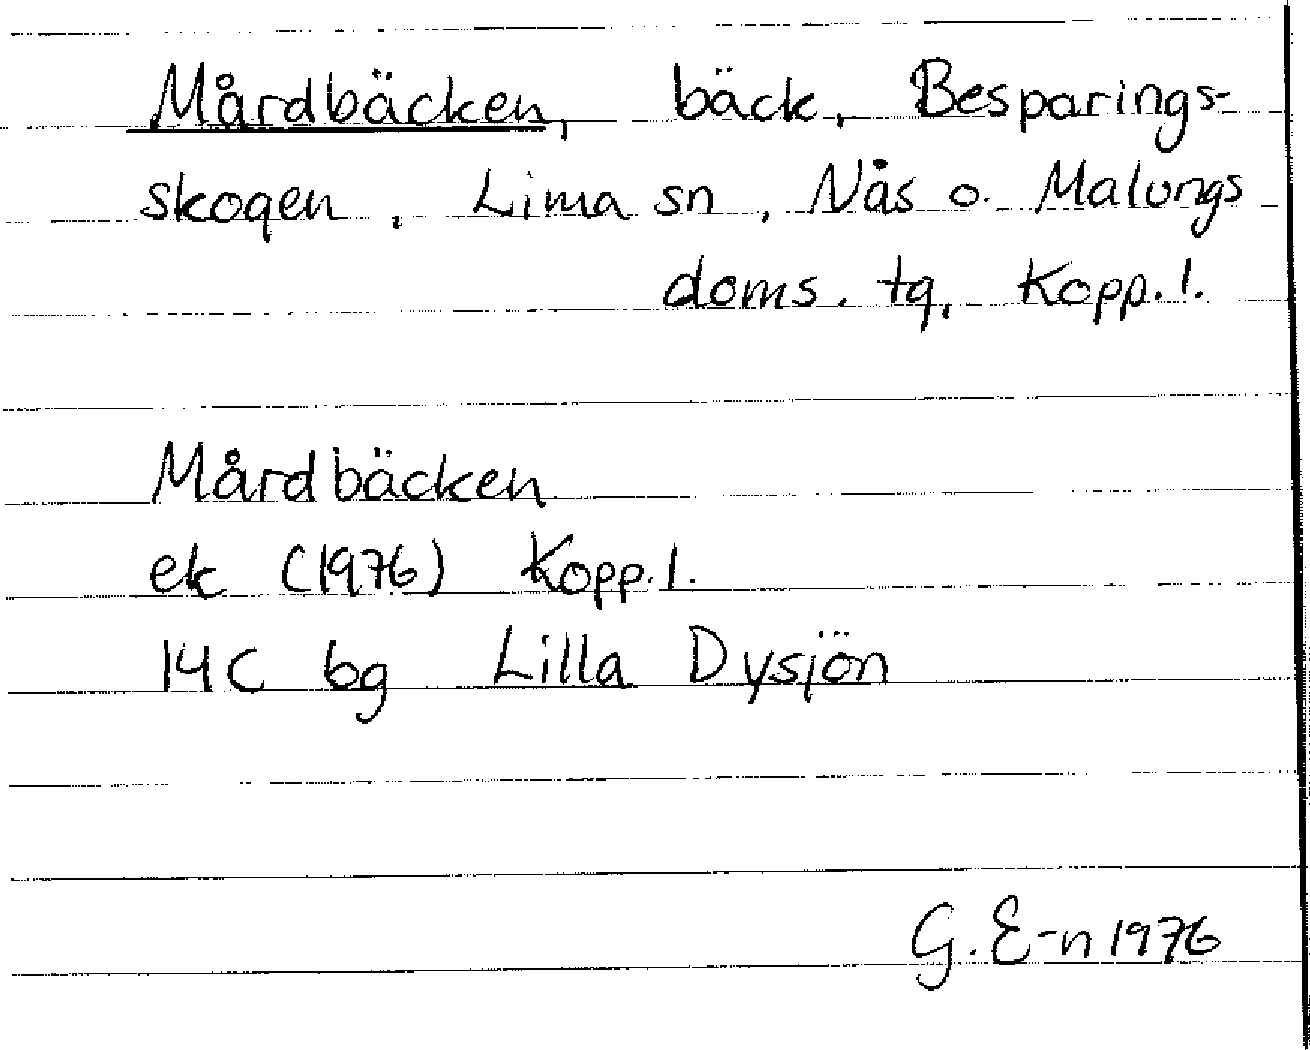 Mårdbäcken, bäck, Besparings-
skogen, Lima sn, Nås o. Malungs
doms. tg, Kopp. l.
Mårdbäcken
ek (1976) Kopp. l.
14C bg Lilla Dysjön
G. E-n 1976